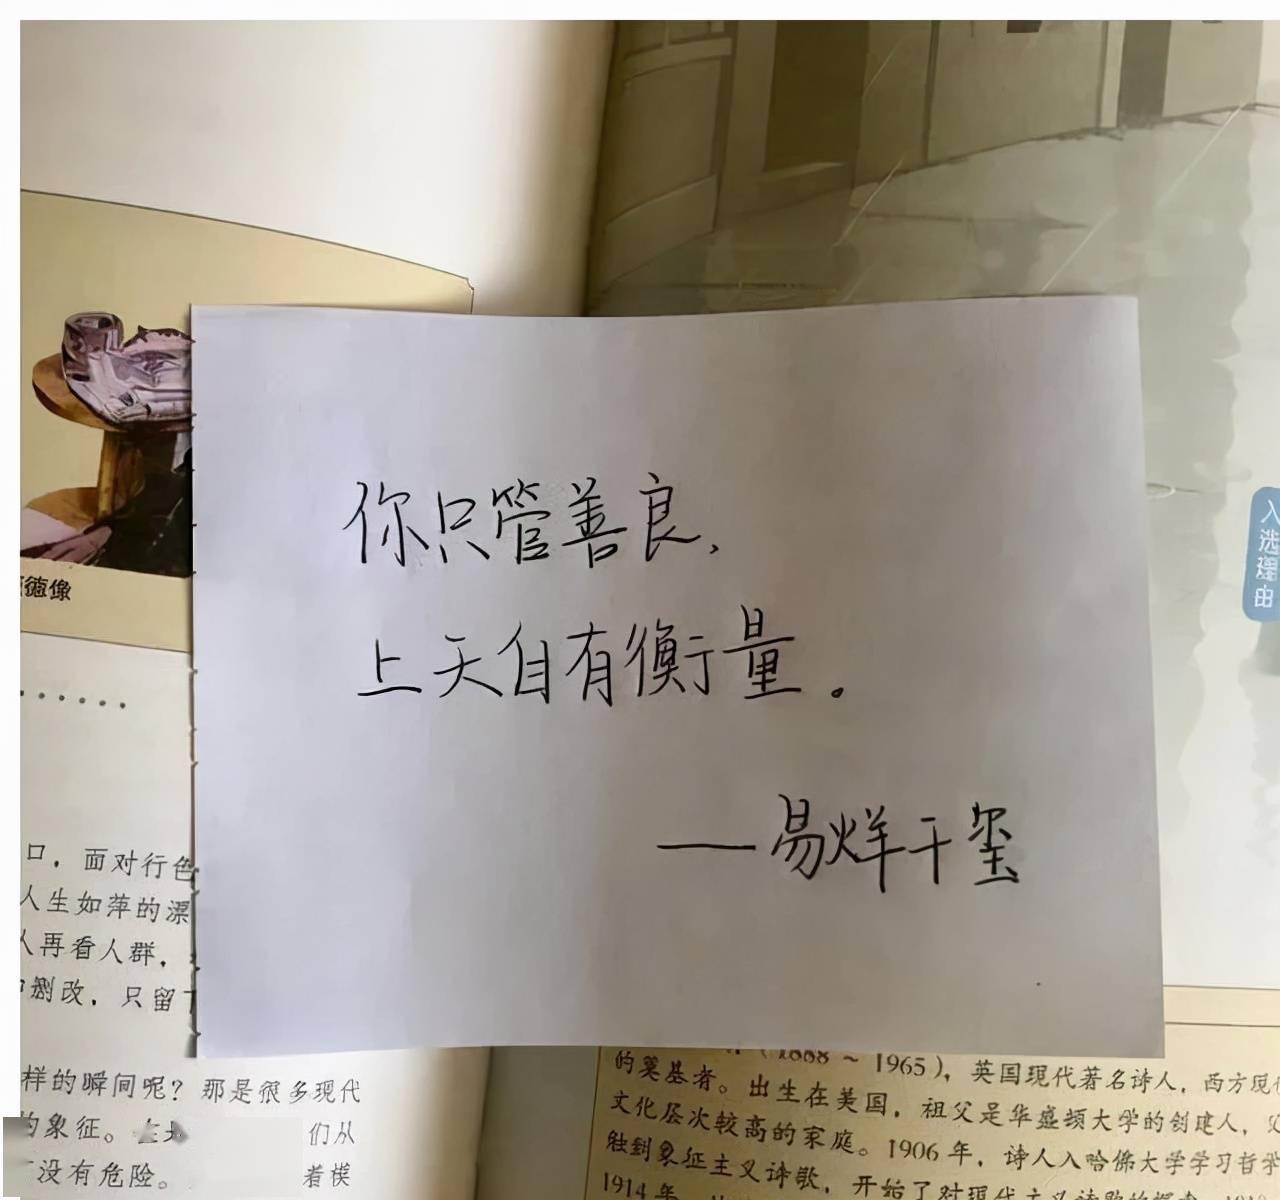 你只管善良,
上天自有衡量。
——易烊千玺
德像
......
口，面对行色
人生如萍的漂
人再看人群，
删改，只留下
样的瞬间呢？那是很多现代
的象征。
们从
没有危险。
着模
入选理由
(1888～1965)，英国现代著名诗人，西方现代
的奠基者。出生在美国，祖父是华盛顿大学的创建人，父
文化层次较高的家庭。1906年，诗人入哈佛大学学习哲学
触到象征主义诗歌，开始了对现代主义诗歌的探索。
1914年